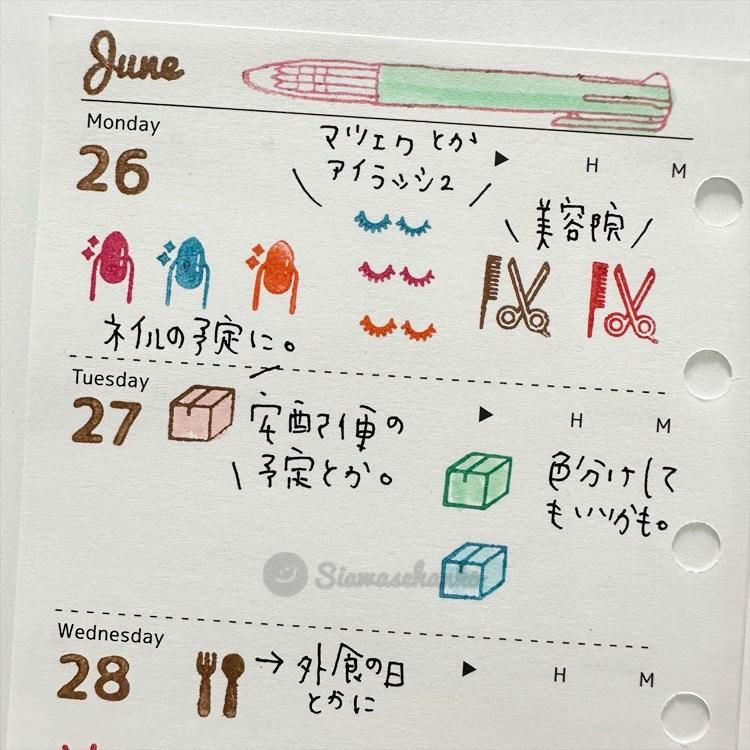 June
Monday
26
マツエクとか
アイラッシュ
▶ H M
美容院
ネイルの予定に。
Tuesday
27
宅配便の
予定とか。
▶ H M
色分けして
もいいかも。
Siawasehanko
Wednesday
28
→ 外食の日
とかに
▶ H M